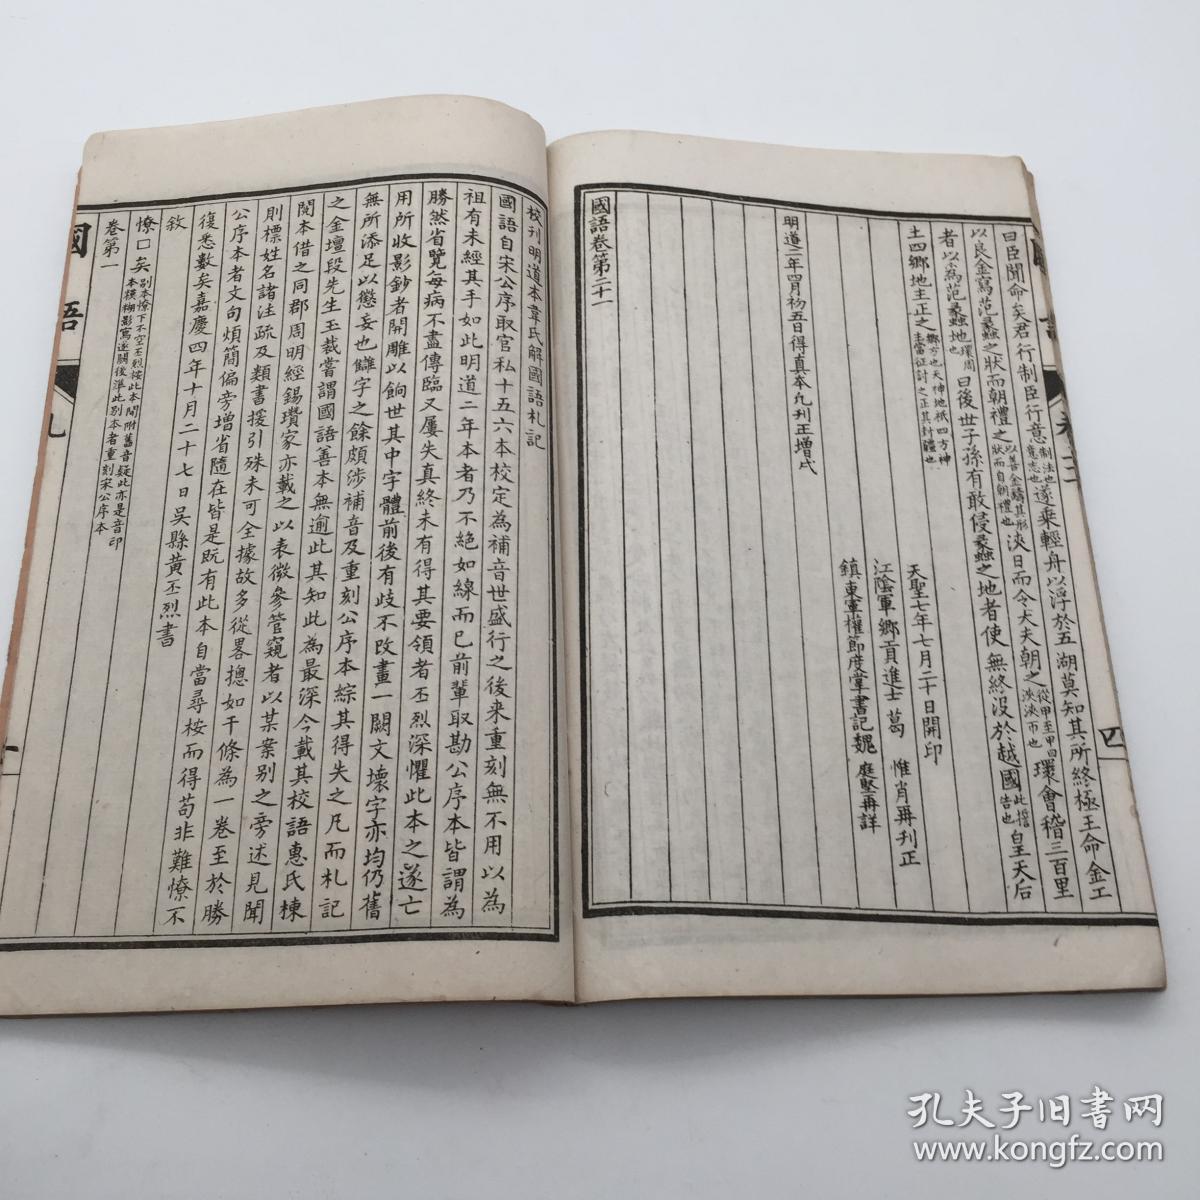 曰臣聞命矣君行制臣行意制法也意志也遂乘輕舟以浮於五湖莫知其所終極王命金工
以良金寫范蠡之狀而朝禮之以善金鑄其形狀而自朝禮也浹日而令大夫朝之從甲至甲曰浹浹帀也環會稽三百里
者以為范蠡地環周也曰後世子孫有敢侵蠡之地者使無終沒於越國此誓告也皇天后
土四鄉地主正之鄉方也天神地祇四方神主當征討之正其封疆也
天聖七年七月二十日開印
江陰軍鄉貢進士葛惟肖再刊正
鎮東軍權節度掌書記魏庭堅再詳
明道二年四月初五日得真本凡刊正增
國語卷第二十一
校刊明道本韋氏解國語札記
國語自宋公序取官私十五六本校定為補音世盛行之後来重刻無不用以為
祖有未經其手如此明道二年本者乃不絕如線而已前輩取勘公序本皆謂為
勝然省覽每病不盡傳臨又屢失真終未有得其要領者丕烈深懼此本之遂亡
用所收影鈔者開雕以餉世其中字體前後有歧不改畫一闕文壞字亦均仍舊
無所添足以懲妄也讎字之餘頗涉補音及重刻公序本綜其得失之凡而札記
之金壇段先生玉裁嘗謂國語善本無逾此其知此為最深今載其校語惠氏棟
閱本借之同郡周明經錫瓚家亦載之以表微參管窺者以某案別之旁述見聞
則標姓名諸注疏及類書援引殊未可全據故多從畧摠如干條為一卷至於勝
公序本者文句煩簡偏旁增省隨在皆是既有此本自當尋桉而得苟非難憭不
復悉數矣嘉慶四年十月二十七日吳縣黃丕烈書
敘
憭口矣別本憭下不空丕烈桉此本閒附舊音疑此亦是音印本模糊影寫遂闕後準此別本者重刻宋公序本
卷第一
國語
札
一
四
孔夫子旧书网
www.kongfz.com